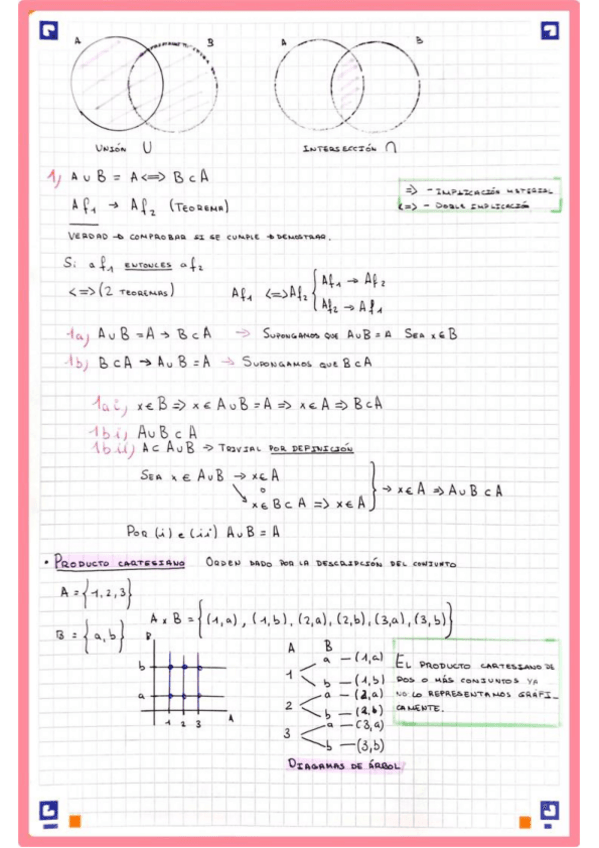 A B A B
UNIÓN ∪ INTERSECCIÓN ∩
1) A ∪ B = A <=> B ⊂ A
=> - IMPLICACIÓN MATERIAL
<=> - DOBLE IMPLICACIÓN
Af₁ → Af₂ (TEOREMA)
VERDAD → COMPROBAR SI SE CUMPLE → DEMOSTRAR.
Si af₁ ENTONCES af₂
<=> (2 TEOREMAS) Af₁ <=> Af₂ { Af₁ → Af₂
Af₂ → Af₁
1a) A ∪ B = A → B ⊂ A → SUPONGAMOS QUE A ∪ B = A SEA x ∈ B
1b) B ⊂ A → A ∪ B = A → SUPONGAMOS QUE B ⊂ A
1ai) x ∈ B => x ∈ A ∪ B = A => x ∈ A => B ⊂ A
1bi) A ∪ B ⊂ A
1bii) A ⊂ A ∪ B → TRIVIAL POR DEFINICIÓN
SEA x ∈ A ∪ B → x ∈ A
o
x ∈ B ⊂ A => x ∈ A } → x ∈ A => A ∪ B ⊂ A
POR (i) e (ii) A ∪ B = A
• PRODUCTO CARTESIANO ORDEN DADO POR LA DESCRIPCIÓN DEL CONJUNTO
A = {1, 2, 3}
A x B = {(1,a), (1,b), (2,a), (2,b), (3,a), (3,b)}
B = {a, b}
B
b
a
1 2 3 A
A B
1 a — (1,a)
b — (1,b)
2 a — (2,a)
b — (2,b)
3 a — (3,a)
b — (3,b)
DIAGRAMAS DE ÁRBOL
EL PRODUCTO CARTESIANO DE
DOS O MÁS CONJUNTOS YA
NO LO REPRESENTAMOS GRÁFI-
CAMENTE.